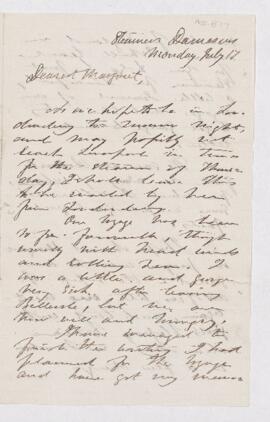 Steamer Damascus
Monday July 17
Dearest Margaret
As we hope to be in Lon-
donderry tomorrow night,
and may possibly not
reach Liverpool in time
for the steamer of Thurs-
day, I shall leave this
to be mailed by her
from Londonderry.
Our voyage has been
so far favorable, though
mostly with head winds
and rolling seas. I
was a little and George
very sick after leaving
but we are
now well and hungry.
I have managed to
finish the writing I had
planned for the voyage
and have got my